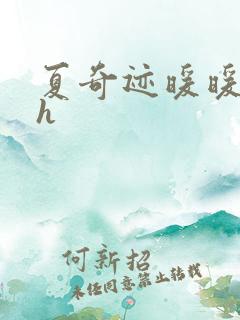 夏奇迹暖暖
h
何新招
未经同意禁止转载